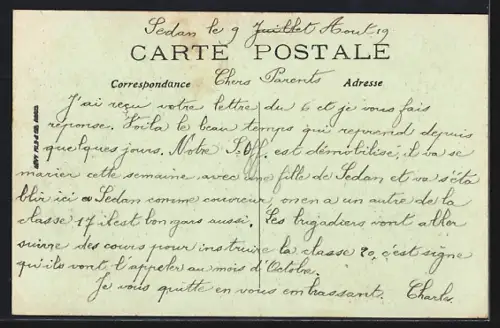 Sedan le 9 Juillet Aout 19
CARTE POSTALE
Correspondance Chers Parents Adresse
J'ai reçu votre lettre du 6 et je vous fais
réponse. Voila le beau temps qui reprend depuis
quelques jours. Notre S.Off. est démobilisé, il va se
marier cette semaine avec une fille de Sedan et va s'éta
blir ici a Sedan comme couvreur, on en a un autre de la
classe 17 il est bon gars aussi. Les brigadiers vont aller
suivre des cours pour instruire la classe 20, c'est signe
qu'ils vont l'appeler au mois d'Octobre.
Je vous quitte en vous embrassant. Charles.